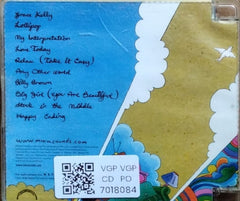 Grace Kelly
Lollipop
My Interpretation
Love Today
Relax (Take It Easy)
Any Other World
Billy Brown
Big Girl (You Are Beautiful)
Stuck in the Middle
Happy Ending
www.mikasounds.com
VGP VGP
CD PD
7018084